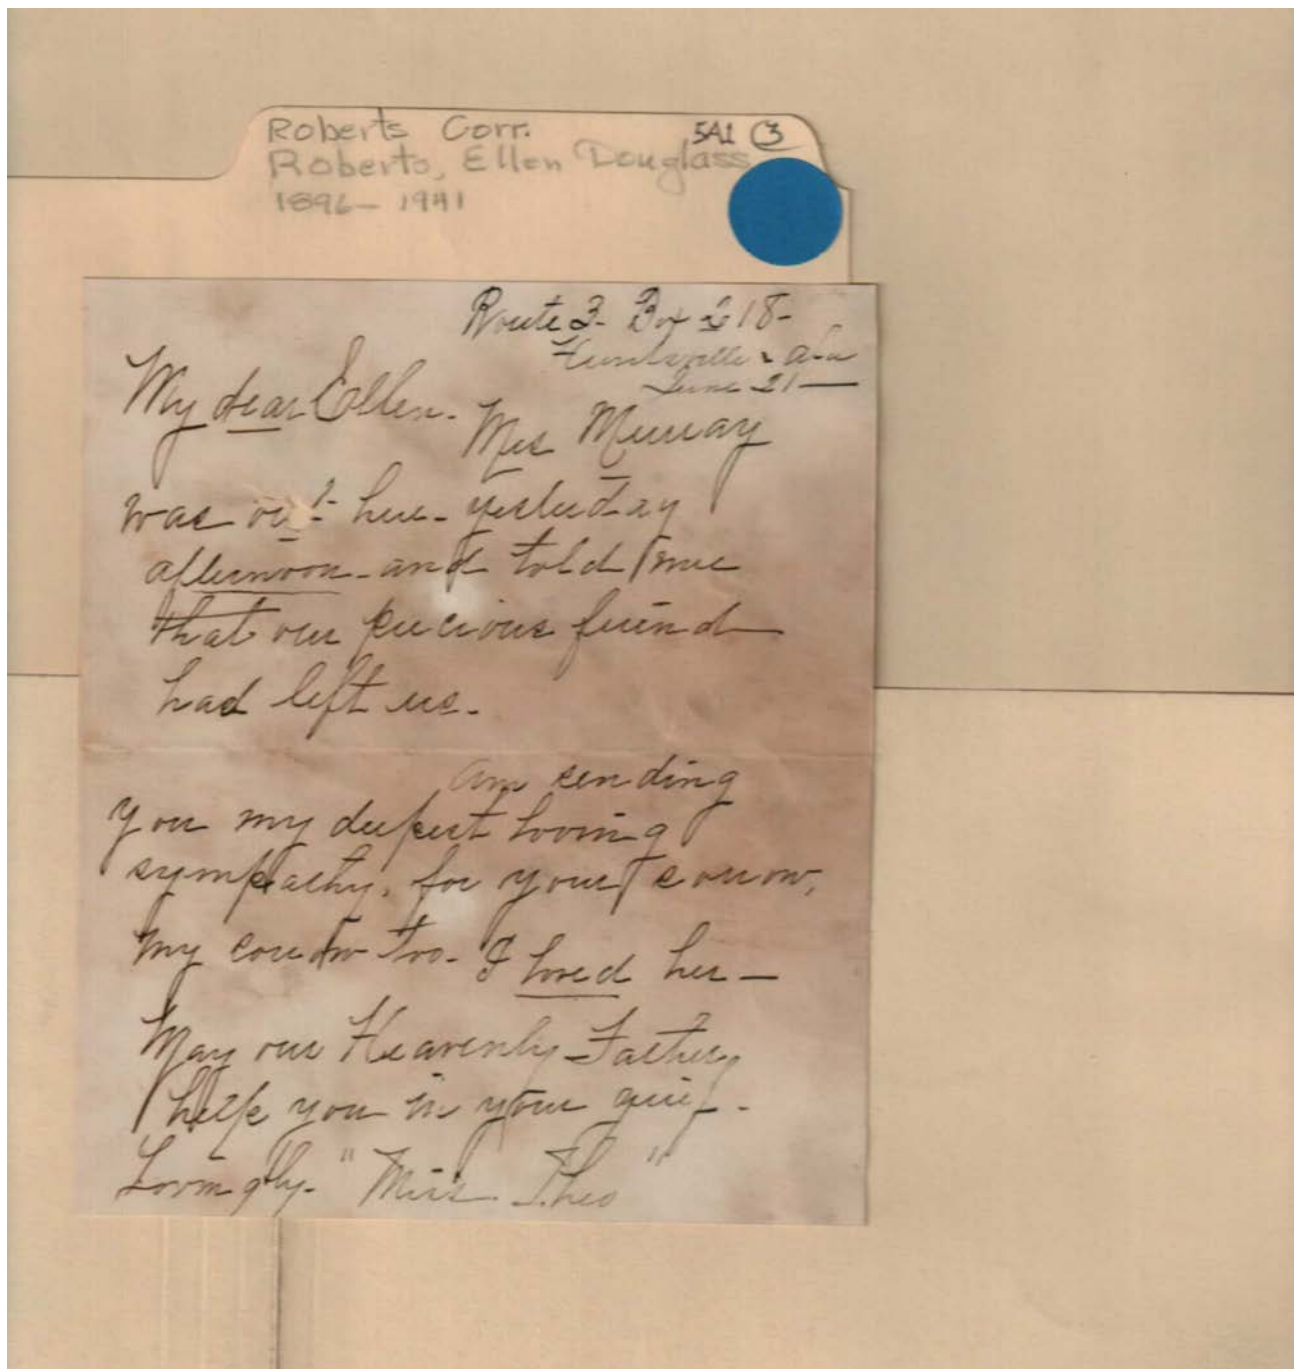 Roberts Corr. 5A1 3
Roberts, Ellen Douglass
1896 - 1941
Route 3 - Box 218 -
Huntsville - Ala
June 21 —
My dear Ellen -
Mrs Murray
was out here - yesterday
afternoon - and told me
that our precious friend
had left us.
Am sending
you my deepest loving
sympathy, for your sorrow,
my sorrow too - I loved her —
May our Heavenly Father
help you in your grief -
Lovingly - "Miss Theo"